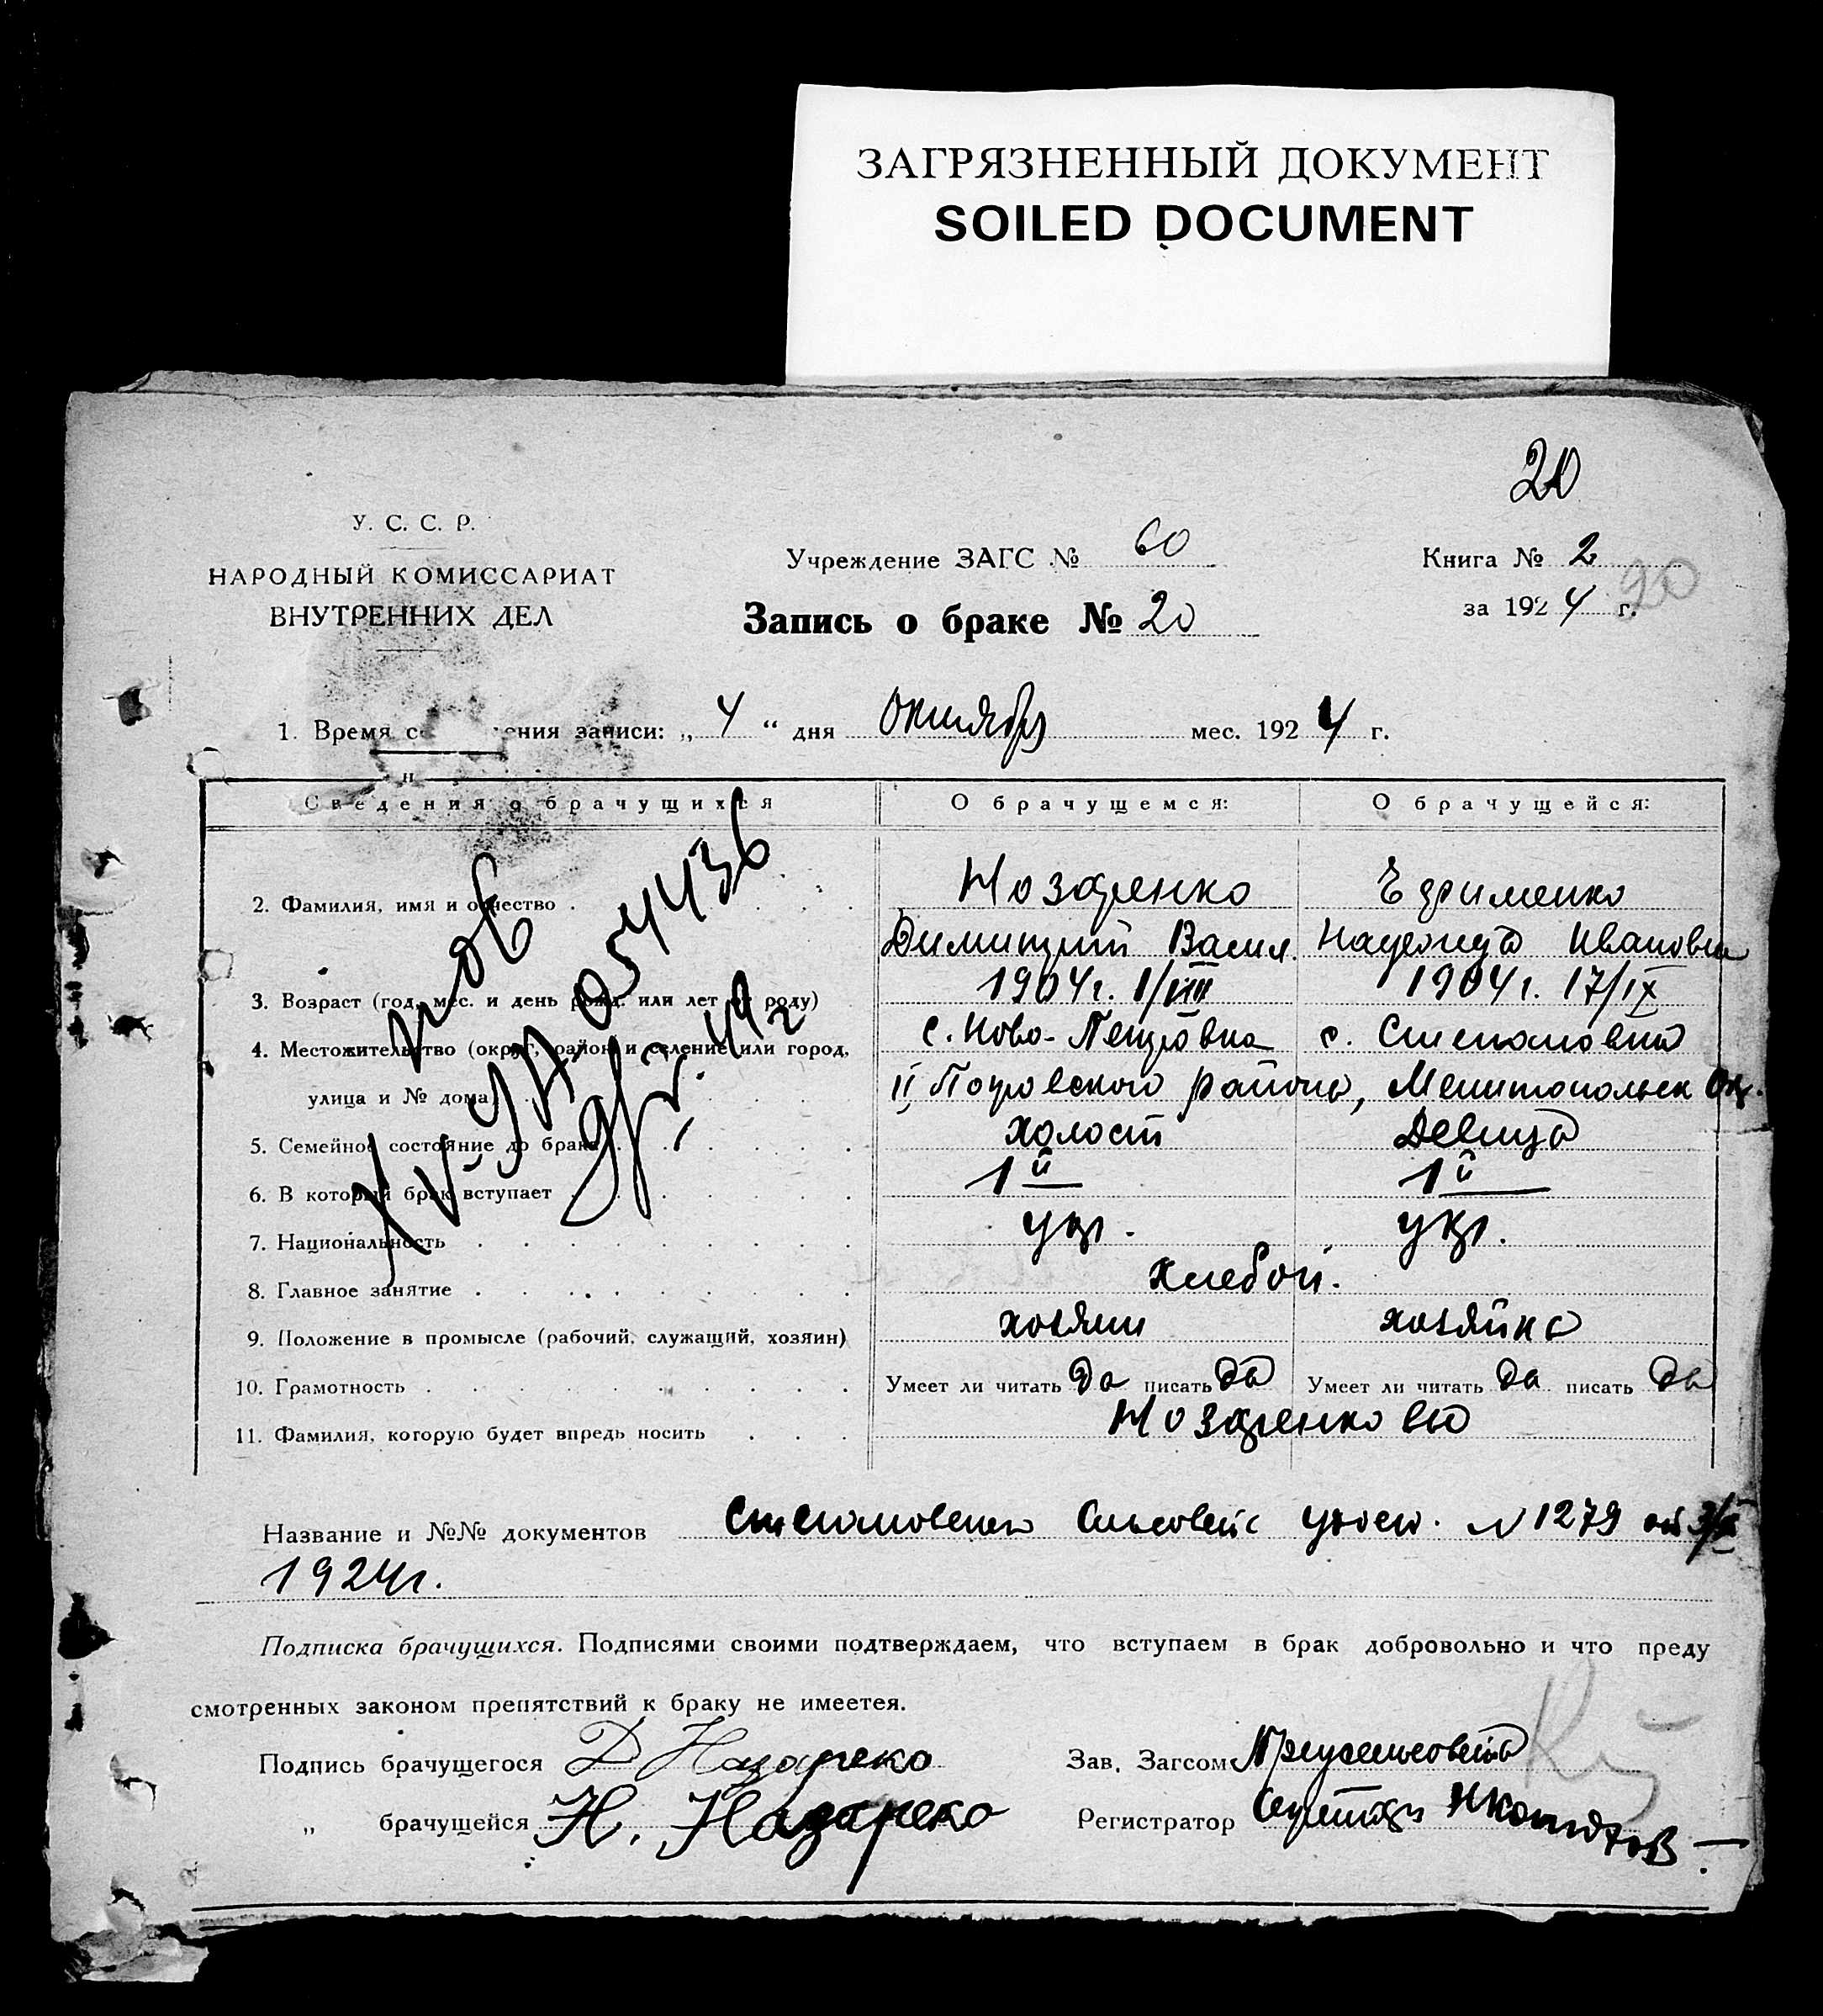 ЗАГРЯЗНЕННЫЙ ДОКУМЕНТ
SOILED DOCUMENT
20
У. С. С. Р.
НАРОДНЫЙ КОМИССАРИАТ
ВНУТРЕННИХ ДЕЛ
Учреждение ЗАГС № 60
Книга № 2
за 1924 г. 20
Запись о браке № 20
1. Время с ения записи: „ 4 “ дня октября мес. 1924 г.
Сведения о брачущихся О брачущемся: О брачущейся:
2. Фамилия, имя и отчество Назаренко Ефименко
Димитрий Васил. Надежда Ивановна
3. Возраст (год, мес. и день рожд. или лет от роду) 1904г. 1/VIII 1904г. 17/IX
4. Местожительство (округ, район и селение или город, с. Ново-Петровка с. Степановка
улица и № дома) II Покровского района, Мелитопольск Окр.
5. Семейное состояние до брака холост девица
6. В который брак вступает 1й 1й
7. Национальность укр. укр.
8. Главное занятие хлебоп.
9. Положение в промысле (рабочий, служащий, хозяин) хозяин хозяйка
10. Грамотность Умеет ли читать да писать да Умеет ли читать да писать да
11. Фамилия, которую будет впредь носить Назаренкова
Название и №№ документов Сельсовета удост. № 1279 от
1924г.
Подписка брачущихся. Подписями своими подтверждаем, что вступаем в брак добровольно и что преду
смотренных законом препятствий к браку не имеетея.
Подпись брачущегося Д Назареко Зав. Загсом
„ брачущейся Н. Назареко Регистратор